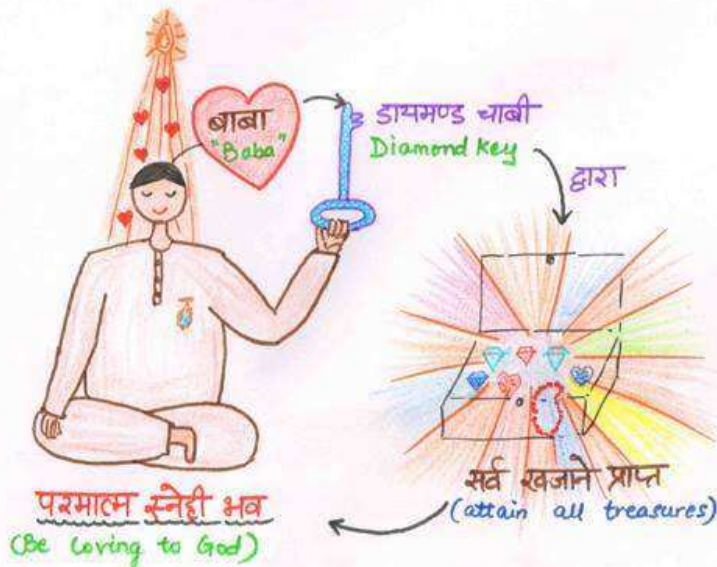 बाबा
"Baba"
डायमण्ड चाबी
Diamond Key
द्वारा
सर्व खजाने प्राप्त
(attain all treasures)
परमात्म स्नेही भव
(Be loving to God)